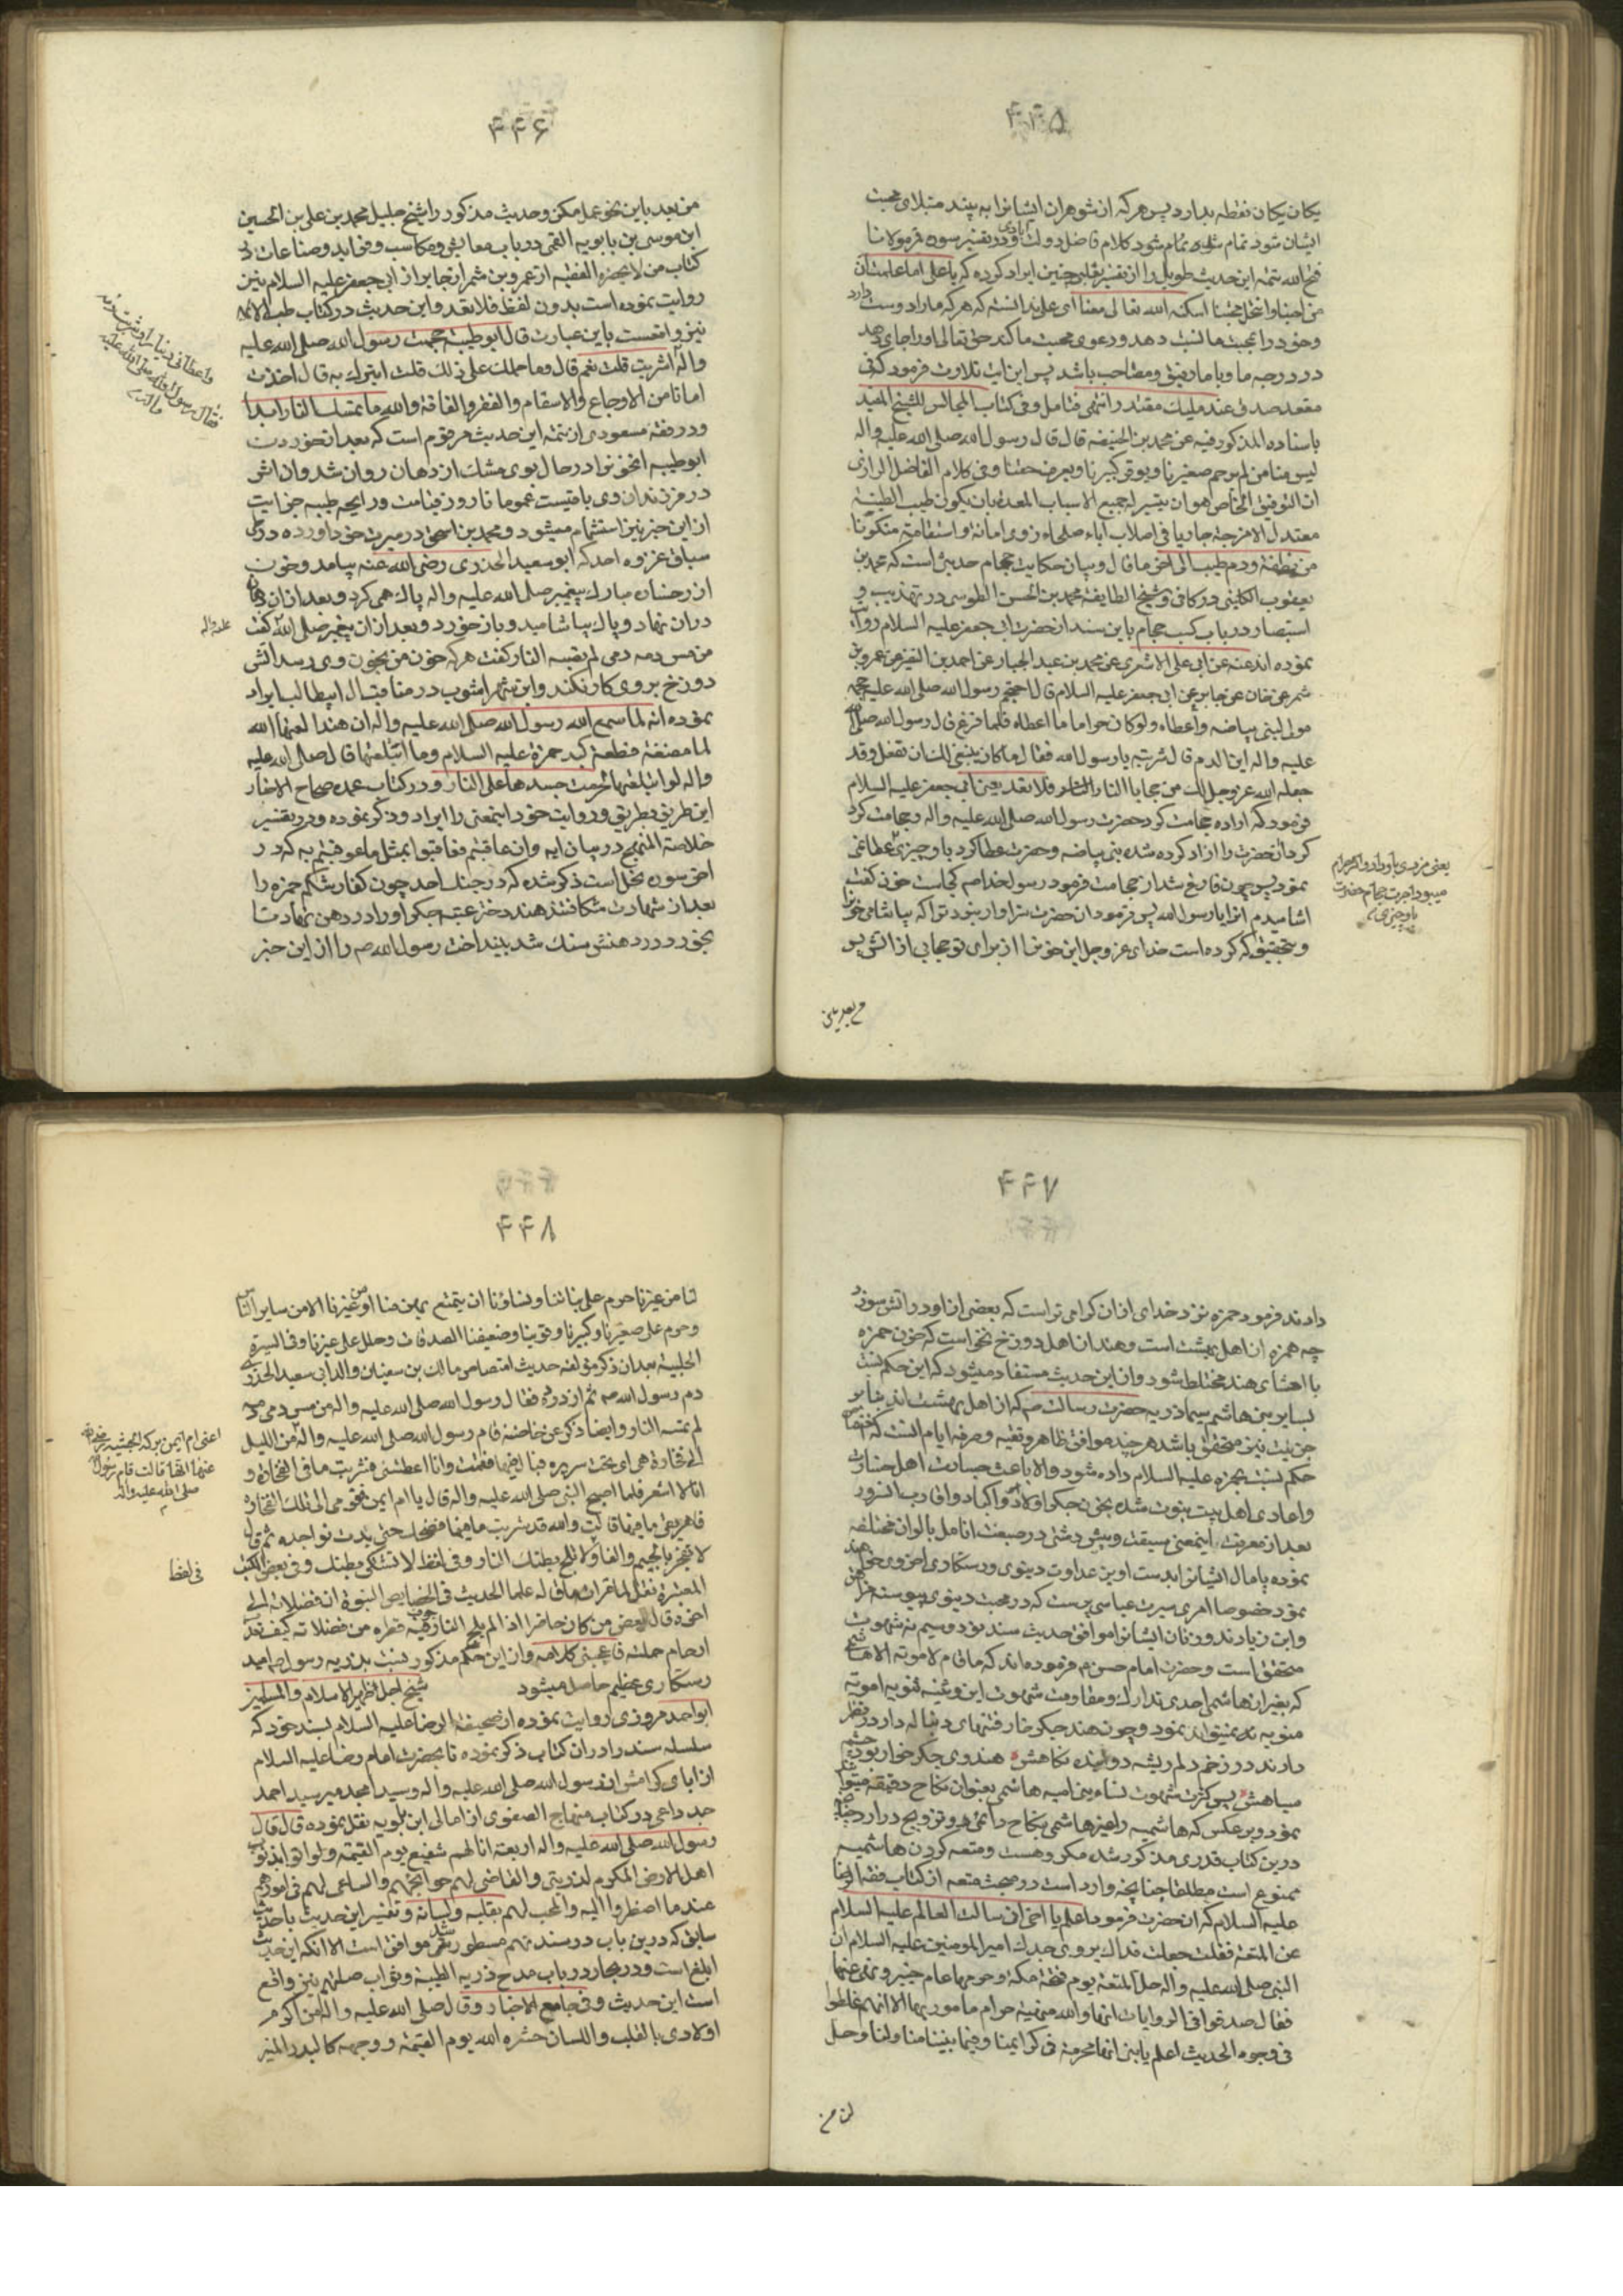 ۴۴۵
یکان یکان نقطه بدارد پس هر که از شوهران ایشانرا به پیند مبتلای محبت
ایشان شود تمام شد کلام فاضل دولت آبادی و در تفسیر سوره فرمولانا
فتح الله تتمه این حدیث طویل را از تفسیر چنین ایراد کرده که یا علی اما علمت ان
من احبنا وانتحل محبتنا اسکنه الله تعالی معنا ای علی ندانسته که هر که ما را دوست دارد
وخود را بمحبت ما نسبت دهد ودعوی محبت ما کند حق تعالی او را جای دهد
در درجه ما و با ما رفیق ومصاحب باشد پس این ایت تلاوت فرمود که فی
مقعد صدق عند ملیك مقتدر انتهی فتامل وفی کتاب المجالس للشیخ المفید
باسناده المذکور فیه عن محمد بن الحنیفه قال قال رسول الله صلی الله علیه واله
لیس منا من لم یرحم صغیرنا ویوقر کبیرنا ویعرف حقنا وفی کلام الفاضل الرازی
ان التوفیق الخاص هو ان یتیسر له جمیع الاسباب المعدة بان یکون طیب الطینة
معتدل الامزجة جاریا فی اصلاب آباء صلحاء ذوی امانة واستقامة متکونا
من نطفة ودم طیب الی اخر ما قال وبیان حکایت حجام حدیثی است که محمد بن
یعقوب الکلینی در کافی وشیخ الطایفه محمد بن الحسن الطوسی در تهذیب و
استبصار در باب کسب حجام باین سند از حضرت ابی جعفر علیه السلام روایت
نموده اند عنه عن ابی علی الاشعری عن محمد بن عبد الجبار عن احمد بن النضر عن عمرو بن
شمر عن جابر عن ابی جعفر علیه السلام قال احتجم رسول الله صلی الله علیه حجمه
مولی لبنی بیاضه واعطاه ولو کان حراما ما اعطاه فلما فرغ قال رسول الله صلی الله
علیه واله این الدم قال شربته یا رسول الله فقال ما کان ینبغی لك ان تفعل وقد
جعله الله عز وجل لك من حجابا النار فلا تعد یعنی ابی جعفر علیه السلام
فرمود که اراده حجامت کرد حضرت رسول الله صلی الله علیه واله وحجامت کرد
کرد انحضرت را ازاد کرده شده بنی بیاضه وحضرت عطا کرد باو چیزی عطا نمی
نمود پس چون فارغ شد از حجامت فرمود رسولخدا صم کجاست خون گفت
اشامیدم انرا یا رسول الله پس فرمود ان حضرت سزاوار نبود ترا که بیاشامی خون
وبتحقیق که کرده است خدای عز وجل این خون را از برای تو حجابی از اتش پس
یعنی مزدی باو داد واکر حرام
میبود اجرت حجام حضرت
باو چیزی
۴۴۶
من بعد باین نحو عمل مکن وحدیث مذکور را شیخ جلیل محمد بن علی بن الحسین
ابن موسی بن بابویه القمی در باب معایش ومکاسب وفواید وصناعات در
کتاب من لا یحضره الفقیه از عمرو بن شمر از جابر از ابی جعفر علیه السلام نیز
روایت نموده است بدون لفظ فلا تعد واین حدیث در کتاب طب الائمه
نیز واقعست باین عبارت قال ابو طیبة حجمت رسول الله صلی الله علیه
واله اشربت قلت نعم قال وما حملك علی ذلك قلت اتبرك به قال اخذت
امانا من الاوجاع والاسقام والفقر والفاقة والله ما تمسك النار ابدا
ودر مسعودی از تتمه این حدیث مرقوم است که بعد از خوردن
ابو طیبه انخون را در حال بوی مشك از دهان روان شد وان اثر
در فرزندان وی باقیست عموما تا روز قیامت ورایحه طیبه جزایت
از این خبر نیز استشمام میشود ومحمد بن اسحق در سیرت خود اورده در ذکر
سیاق غزوه احد که ابو سعید الخدری رضی الله عنه بیامد وخون
از رخسار مبارك پیغمبر صلی الله علیه واله پاك همی کرد وبعد از ان دهان
دران نهاد وپاك بیاشامید وباز خورد وبعد ازان پیغمبر صلی الله گفت
من مس دمه دمی لم یصبه النار گفت هر که خون من بخون وی رسد اتش
دوزخ بر وی کار نکند وابن شهر اشوب در مناقب ال ابیطالب ایراد
نموده انه لما سمع الله رسول الله صلی الله علیه واله ان هندا لعنها الله
لما مضغت قطعة کبد حمزة علیه السلام وما ابتلعتها قال صلی الله علیه
واله لو ابتلعتها لحرمت جسدها علی النار ودر کتاب عمده صحاح الاخبار
این طریق بطریق وروایت خود اینمعنی را ایراد وذکر نموده ودر تفسیر
خلاصة المنهج در بیان ایه وان عاقبتم فعاقبوا بمثل ما عوقبتم به که در
اخر سوره نحل است ذکر شده که در جنك احد چون کفار شکم حمزه را
بعد از شهادت شکافتند هند دختر عتبه جکر او را در دهن نهاد تا
بخورد در دهنش سنك شد بینداخت رسول الله صم را از این خبر
واعطانی دینارا وشربت دمه
فقال رسول الله صلی الله علیه
واله
علیه واله
من بعد باین
۴۴۷
دادند فرمود حمزه نزد خدای ازان کرامی تر است که بعضی از او در اتش سوزد
چه حمزه از اهل بهشت است وهند از اهل دوزخ نخواست که خون حمزه
با اعضای هند مختلط شود واز این حدیث مستفاد میشود که این حکم نسبت
بسایر بنی هاشم سیما ذریه حضرت رسالت صم که از اهل بهشت اند بنا بر
جزئیت نیز متحقق باشد هر چند موافق ظاهر وتقیه وصرفه ایام انست که اختصاص
حکم نسبت بحمزه علیه السلام داده شود والا باعث جسارت اهل خسارت
واعادی اهل بیت نبوت شده بخون جکر اولاد واکباد واقارب انسرور
بعد از معرفت اینمعنی سبقت وپیش دستی در صبغت انامل بالوان مختلفه
نموده پامال ایشانرا ابدست اوین عداوت دنیوی ورستکاری اخروی خواهند
نمود خصوصا امری سیرت عباسی پرست که در محبت دنیوی پیوسته
وابن زیادند وزنان ایشانرا موافق حدیث سند نود وسیم نه شهوت
متحقق است وحضرت امام حسن م فرموده اند که ما قام لامویة الا هاشمی
که بغیر از هاشمی احدی تدارك ومقاومت شهوت این وغنیه فنویه امویه
منویه نمیتواند نمود وچون هند جکر خوار رفتنهای دنباله دار در نظر
دارند در زخم دلم ریشه دوانیده نکاهش هندوی جکر خوار بود چشم
سیاهش پس کثرت شهوت نساء بنی امیه هاشمی بعنوان نکاح دقیقه میتواند
نمود وبر عکس که هاشمیه را غیر هاشمی بنکاح دائمی وتزویج در ارد چنانکه
درین کتاب قدری مذکور شده مکروهست ومتعه کردن هاشمیه
ممنوع است مطلقا چنانچه وارد است در مبحث متعه از کتاب فقه الرضا
علیه السلام که ان حضرت فرمود اعلم یا اخی انی سالت العالم علیه السلام
عن المتعة فقلت جعلت فداك یروی جدك امیر المومنین علیه السلام ان
النبی صلی الله علیه واله حل المتعة یوم فتح مکة وحرمها عام خیبر ونهی عنها
فقال صدقوا فی الروایات انها والله منهیة حرام مامور بها الا انهم غلطوا
فی وجوه الحدیث اعلم یا بنی انها محرمة فی کرایمنا وفیما بیننا منا ولنا وحل
لنا من
۴۴۸
لنا من غیرنا حرم علی بناتنا ونساؤنا ان یتمتع بهن منا او من غیرنا الا من سایر الناس
وحرم علی صغیرنا وکبیرنا وقوینا وضعیفنا الصدقات وحلل علی غیرنا وفی السیرة
الحلبیة بعد ان ذکر مؤلفه حدیث امتصاص مالك بن سعینان والد ابی سعید الخدری
دم رسول الله صم ثم ازدرده فقال رسول الله صلی الله علیه واله من مس دمی دمه
لم تمسه النار وایضا ذکر عن حاضنة قام رسول الله صلی الله علیه واله من اللیل
الی فخارة هی ای تحت سریره فبال فیها فقمت وانا عطشی فشربت ما فی الفخارة و
انا لا اشعر فلما اصبح النبی صلی الله علیه واله قال یا ام ایمن قومی الی تلك الفخارة
فاهریقی ما فیها قالت والله قد شربت ما فیها فضحك حتی بدت نواجده ثم قال
لا یجفر بالجیم والفاء ولا تلج بطنك النار وفی لفظ لا تشتکی بطنك وفی بعض الکتب
المعتبرة نقل لما قرات ما قاله علما الحدیث فی الخصایص النبویة ان فضلاته الی
اخره قال بعض من کان حاضرا اذا لم یلج النار جوف فیه قطرة من فضلاته کیف تعذب
ارحام حملته فاعجبنی کلامه واز این حکم مذکور نسبت بذریه رسول صم امید
رستکاری عظیم حاصل میشود شیخ اجل ظهیر الاسلام والمسلمین
ابو احمد مروزی روایت نموده از صحیفة الرضا علیه السلام بسند خود که
سلسله سند را دران کتاب ذکر نموده تا بحضرت امام رضا علیه السلام
از ابای کرامش از رسول الله صلی الله علیه واله وسید امجد میر سید احمد
جد داعی در کتاب منهاج الصفوی از امالی ابن بابویه نقل نموده قال قال
رسول الله صلی الله علیه واله اربعة انا لهم شفیع یوم القیمة ولو اتوا بذنوب
اهل الارض المکرم لذریتی والقاضی لهم حوائجهم والساعی لهم فی امورهم
عند ما اضطروا الیه والمحب لهم بقلبه ولسانه وتفسیر این حدیث با حدیث
سابق که درین باب در سند نهم مسطور شد موافق است الا انکه این حدیث
ابلغ است ودر بحار در باب مدح ذریه الطیبة وثواب صلتهم نیز واقع
است این حدیث وفی جامع الاخبار وقال صلی الله علیه واله من اکرم
اولادی بالقلب واللسان حشره الله یوم القیمة ووجهه کالبدر المنیر
اعنی ام ایمن برکة الحبشیة رضی الله
عنها انها قالت قام رسول الله
صلی الله علیه واله
فی لفظ